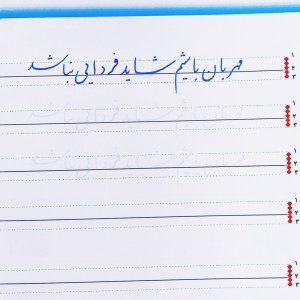 مهربان باشیم شاید فردایی نباشد
۱
۲
۳
۱
۲
۳
۱
۲
۳
۱
۲
۳
۱
۲
۳